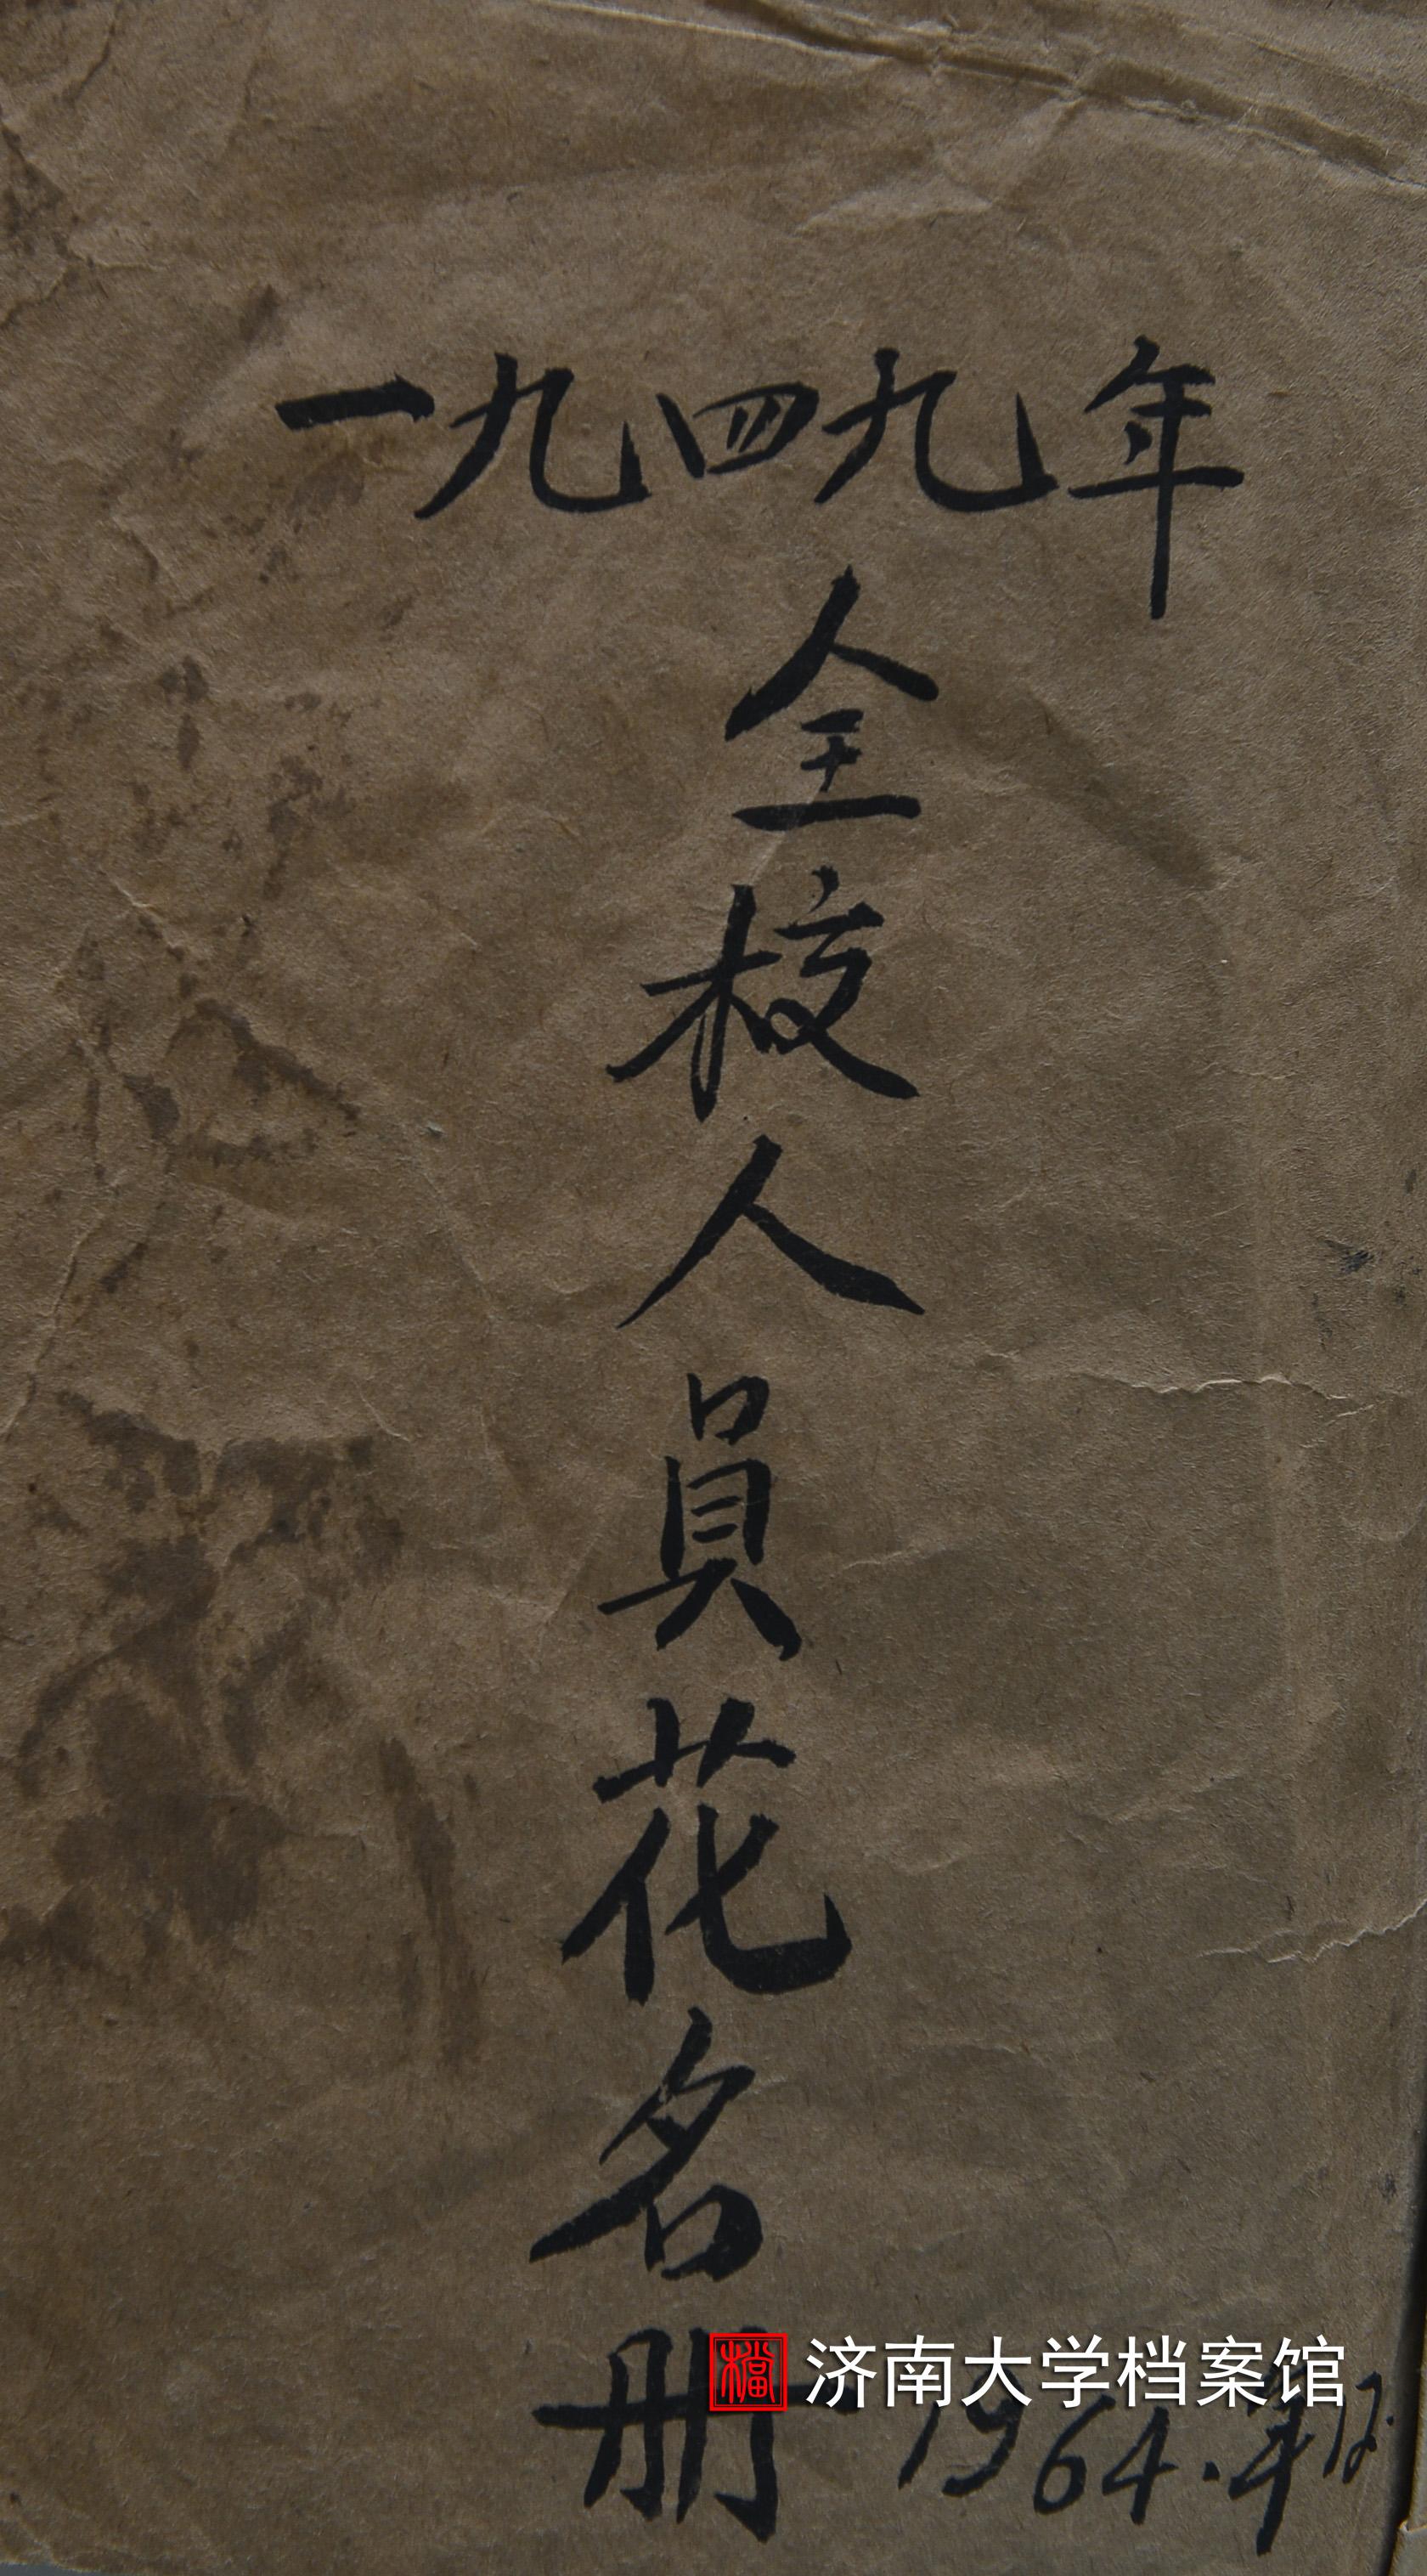 一九四九年
全校人員花名册
檔 济南大学档案馆
1964.年